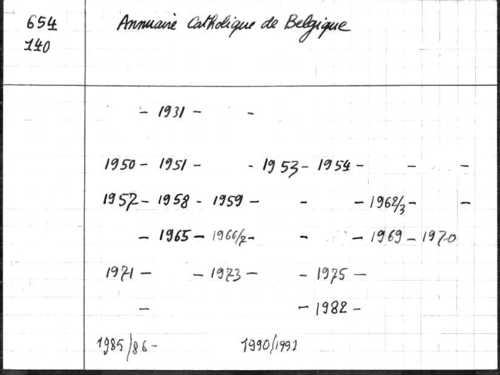 654 Annuaire Catholique de Belgique
140
- 1931 - -
1950 - 1951 - - 1953 - 1954 - - -
1957 - 1958 - 1959 - - - 1962/3 - -
- 1965 - 1966/7 - - - 1969 - 1970
1971 - - 1973 - - 1975 -
- - 1982 -
1985/86 - 1990/1991